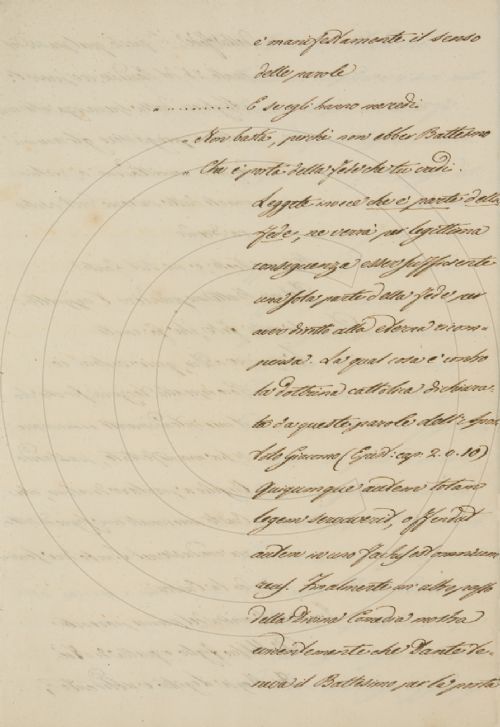 è manifestamente il senso
delle parole
" ........... E s'egli hanno mercedi
" Non basta, perchè non ebber Battesmo
" Ch'è porta della Fede che tu credi.
Leggete invece che è parte della
Fede, ne verrà per legittima
conseguenza esser sufficiente
una sola parte della Fede per
aver diritto alla eterna ricom-
pensa. La qual cosa è contro
la dottrina cattolica dichiara-
ta da queste parole dell'Apos-
tolo Giacomo (Epist: cap. 2. v. 10)
Quicumque autem totam
legem servaverit, offendat
autem in uno factus est omnium
reus. Finalmente un altro passo
della Divina Comedia mostra
evidentemente che Dante te-
neva il Battesimo per la porta